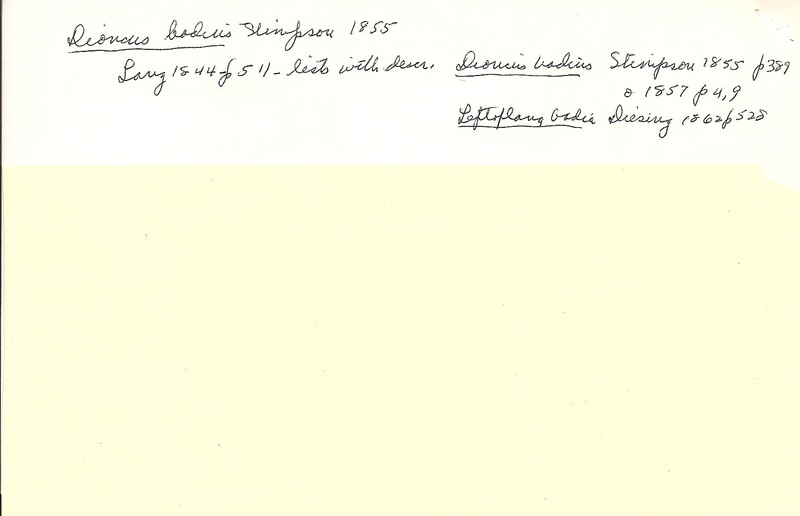 Dioncus badius Stimpson 1855
Lang 1844 p 511 - lists with descr.
Dioncus badius Stimpson 1855 p 389
o 1857 p 4, 9
Leptoplana badia Diesing 1862 p 528